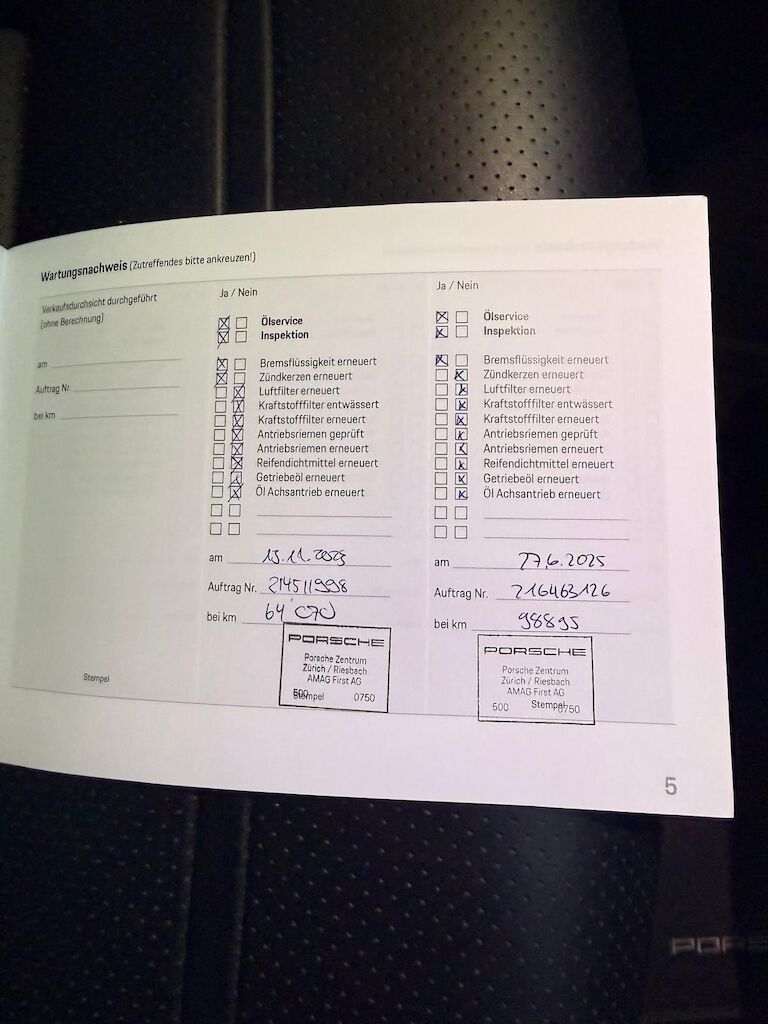 Wartungsnachweis (Zutreffendes bitte ankreuzen!)
Verkaufsdurchsicht durchgeführt
(ohne Berechnung)
am
Auftrag Nr.
bei km
Stempel
Ja / Nein
Ölservice
Inspektion
Bremsflüssigkeit erneuert
Zündkerzen erneuert
Luftfilter erneuert
Kraftstofffilter entwässert
Kraftstofffilter erneuert
Antriebsriemen geprüft
Antriebsriemen erneuert
Reifendichtmittel erneuert
Getriebeöl erneuert
Öl Achsantrieb erneuert
am 13.11.2023
Auftrag Nr. 214511998
bei km 64'070
PORSCHE
Porsche Zentrum
Zürich / Riesbach
AMAG First AG
500 Stempel 0750
Ja / Nein
Ölservice
Inspektion
Bremsflüssigkeit erneuert
Zündkerzen erneuert
Luftfilter erneuert
Kraftstofffilter entwässert
Kraftstofffilter erneuert
Antriebsriemen geprüft
Antriebsriemen erneuert
Reifendichtmittel erneuert
Getriebeöl erneuert
Öl Achsantrieb erneuert
am 27.6.2025
Auftrag Nr. 216463126
bei km 98895
PORSCHE
Porsche Zentrum
Zürich / Riesbach
AMAG First AG
500 Stempel 0750
5